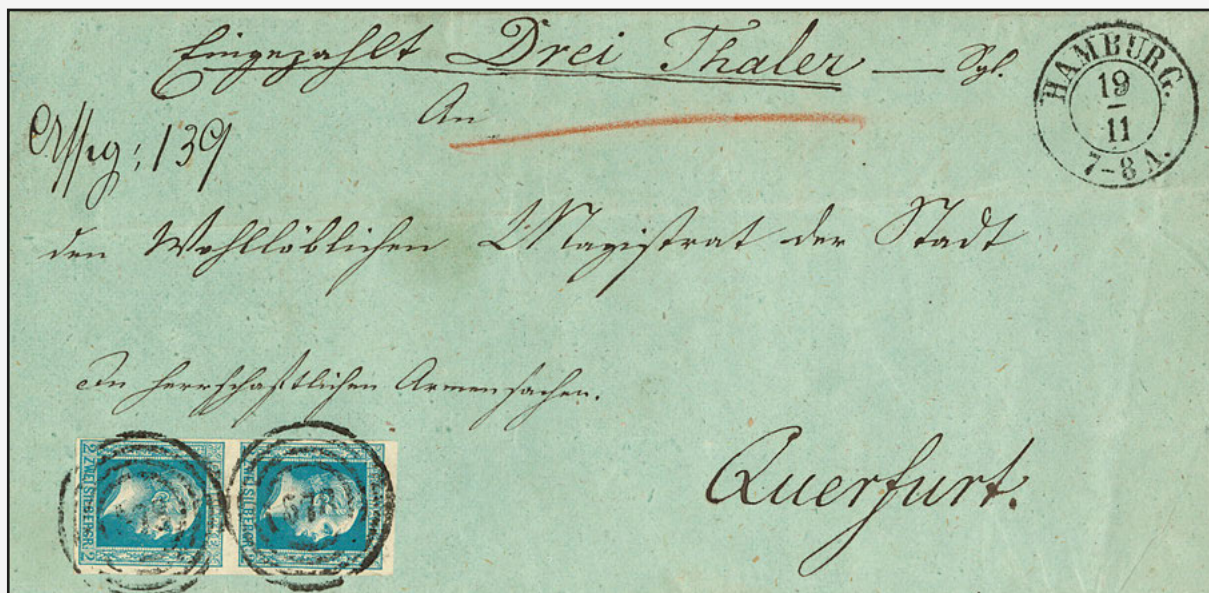 Eingezahlt Drei Thaler — Sgl.
HAMBURG.
19
11
7-8 A.
An
139
den Wohllöblichen Magistrat der Stadt
In herrschaftlichen Armensachen.
Querfurt.
2 ZWEI SILBERGR. 2
ZWEI SILBERGR. 2